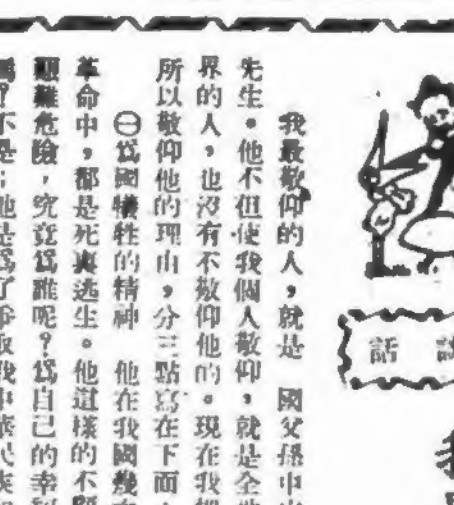 話
我最敬仰的人,就是 國父孫中
先生。他不但使我個人敬仰,就是全
界的人,也沒有不敬仰他的。現在我
所以敬仰他的理由,分三點寫在下面
㊀爲國犧牲的精神 他在我國幾
革命中,都是死裏逃生。他這樣的不
艱難危險,究竟爲誰呢?爲自己的幸
嗎?不是;他是爲了爭取我中華民族